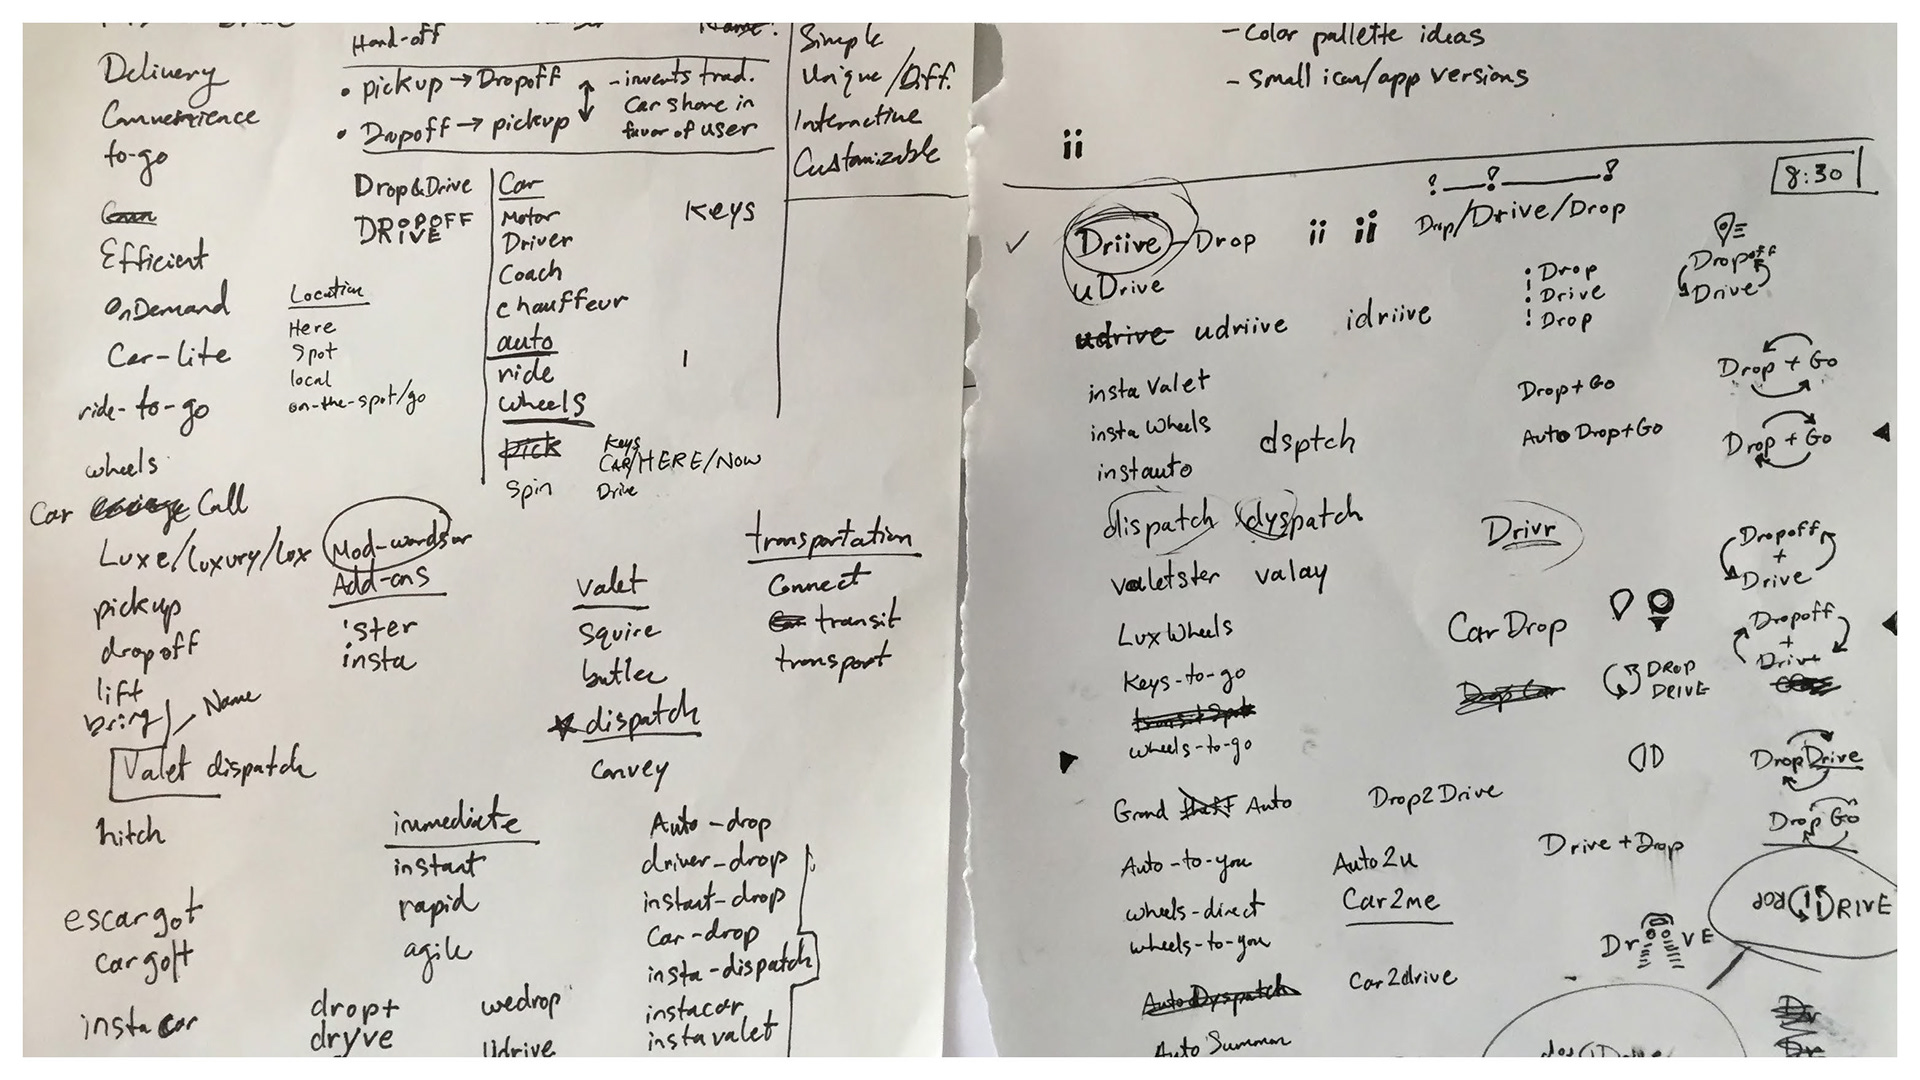 Hand-off
Delivery
Convenience
to-go
Efficient
OnDemand
Car-lite
ride-to-go
wheels
Car Call
Luxe/Luxury/Lux
pickup
dropoff
lift
bring
Name
Valet dispatch
hitch
escargot
cargo
instacar
• pickup → Dropoff
• Dropoff → pickup
- invents trad.
Car share in
favor of user
Simple
Unique/Diff.
Interactive
Customizable
Drop&Drive
DROPOFF
DRIVE
Location
Here
Spot
local
on-the-spot/go
Car
Motor
Driver
Coach
chauffeur
auto
ride
wheels
pick
spin
Keys
Keys
CAR/HERE/NOW
Drive
Mod-words or
Add-ons
'ster
insta
valet
squire
butler
dispatch
convey
transportation
Connect
transit
transport
immediate
instant
rapid
agile
Auto-drop
driver-drop
instant-drop
Car-drop
insta-dispatch
instacar
instavalet
drop+
dryve
wedrop
Udrive
- Color pallette ideas
- Small icon/app versions
ii
8:30
Driive-Drop
ii ii
Drop/Drive/Drop
uDrive
udrive udriive idriive
insta Valet
insta Wheels
instauto
dsptch
dispatch dyspatch
valetster valay
Lux Wheels
Keys-to-go
wheels-to-go
Grand theft Auto
Auto-to-you
wheels-direct
wheels-to-you
Auto Dyspatch
Auto Summon
Drop
Drive
Drop
Drop+Go
Auto Drop+Go
Drivr
CarDrop
Drop Car
DROP
DRIVE
Drop2Drive
Auto2u
Car2me
Car2drive
Drive+Drop
Dropoff
Drive
Drop + Go
Drop + Go
Dropoff
+
Drive
Dropoff
+
Drive
DropDrive
Drop Go
DRIVE
Dr VE